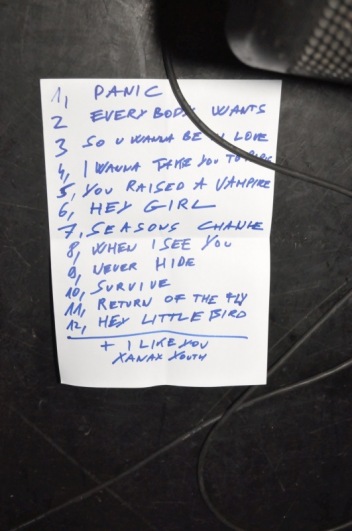 1, PANIC
2 EVERY BODY WANTS
3 SO U WANNA BE IN LOVE
4, I WANNA TAKE YOU TO
5, YOU RAISED A VAMPIRE
6, HEY GIRL
7, SEASONS CHANGE
8, WHEN I SEE YOU
9, NEVER HIDE
10, SURVIVE
11, RETURN OF THE FLY
12, HEY LITTLE BIRD
+ I LIKE YOU
XANAX YOUTH